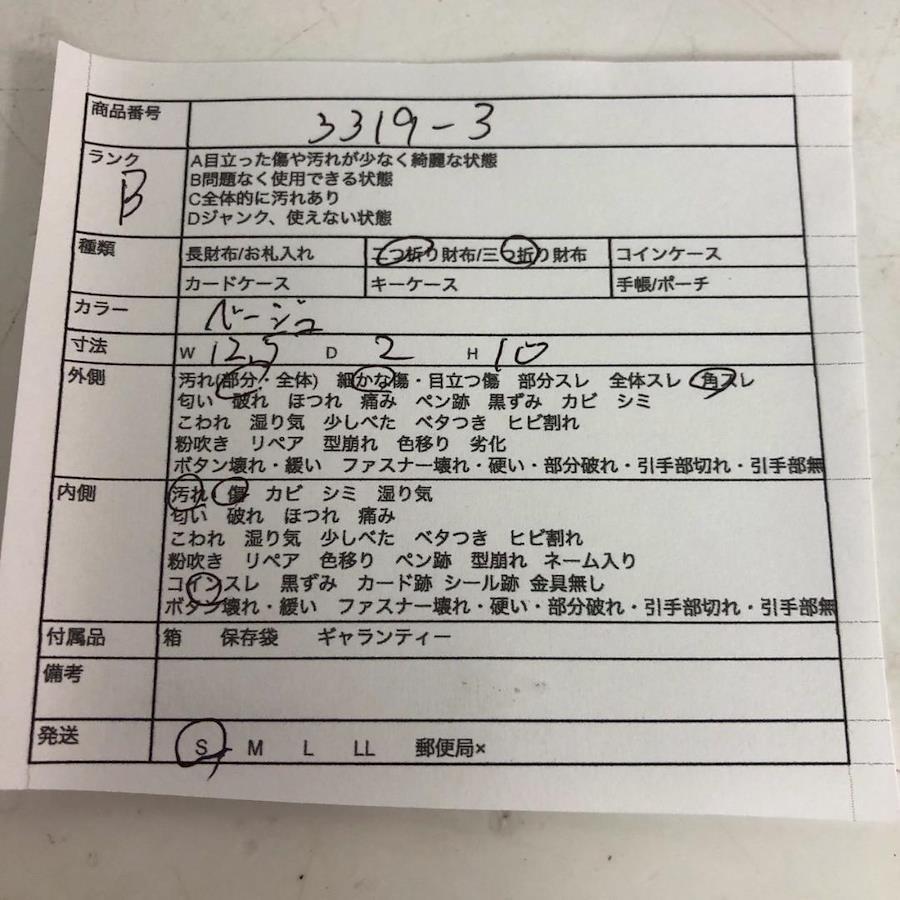 商品番号 3319-3
ランク B
A目立った傷や汚れが少なく綺麗な状態
B問題なく使用できる状態
C全体的に汚れあり
Dジャンク、使えない状態
種類 長財布/お札入れ 二つ折り財布/三つ折り財布 コインケース
カードケース キーケース 手帳/ポーチ
カラー ベージュ
寸法 W 12.5 D 2 H 10
外側 汚れ(部分・全体) 細かな傷・目立つ傷 部分スレ 全体スレ 角スレ
匂い 破れ ほつれ 痛み ペン跡 黒ずみ カビ シミ
こわれ 湿り気 少しべた ベタつき ヒビ割れ
粉吹き リペア 型崩れ 色移り 劣化
ボタン壊れ・緩い ファスナー壊れ・硬い・部分破れ・引手部切れ・引手部無
内側 汚れ 傷 カビ シミ 湿り気
匂い 破れ ほつれ 痛み
こわれ 湿り気 少しべた ベタつき ヒビ割れ
粉吹き リペア 色移り ペン跡 型崩れ ネーム入り
コインスレ 黒ずみ カード跡 シール跡 金具無し
ボタン壊れ・緩い ファスナー壊れ・硬い・部分破れ・引手部切れ・引手部無
付属品 箱 保存袋 ギャランティー
備考
発送 S M L LL 郵便局×